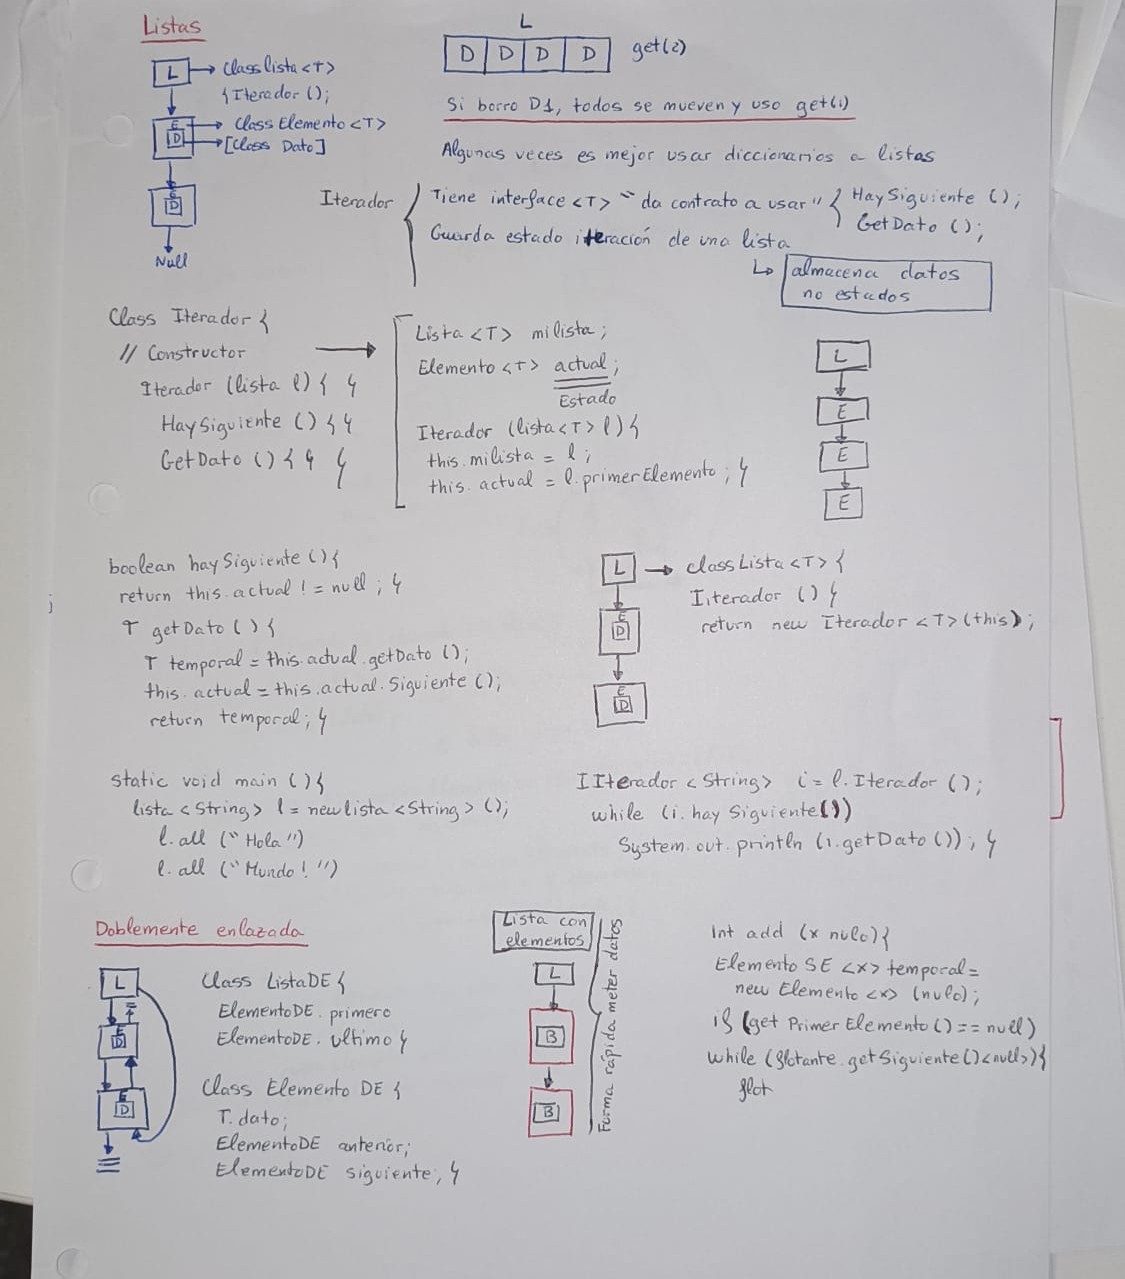 Listas
L → Class lista <T>
{ Iterador ();
E → Class Elemento <T>
D → [Class Dato]
E
D
Null
L
D D D D get(2)
Si borro D1, todos se mueven y uso get(1)
Algunas veces es mejor usar diccionarios a listas
Iterador { Tiene interface <T> "da contrato a usar" { HaySiguiente ();
GetDato ();
Guarda estado iteración de una lista
↳ almacena datos
no estados
Class Iterador {
// Constructor →
Iterador (lista l) { }
HaySiguiente () { }
GetDato () { } }
Lista <T> milista;
Elemento <T> actual;
Estado
Iterador (lista<T> l) {
this.milista = l;
this.actual = l.primerElemento; }
L
E
E
E
boolean haySiguiente () {
return this.actual != null; }
T getDato () {
T temporal = this.actual.getDato ();
this.actual = this.actual.Siguiente ();
return temporal; }
L → class Lista <T> {
E
D
E
D
Iiterador () {
return new Iterador <T> (this);
static void main () {
lista <String> l = new lista <String> ();
l.all ("Hola")
l.all ("Mundo!")
IIterador <String> i = l.Iterador ();
while (i.hay Siguiente())
System.out.println (i.getDato ()); }
Doblemente enlazada
L
E
D
E
D
Class ListaDE {
ElementoDE.primero
ElementoDE.ultimo }
Class Elemento DE {
T.dato;
ElementoDE anterior;
ElementoDE siguiente; }
Lista con
elementos
L
B
B
Forma rápida meter datos
Int add (x nulo) {
Elemento SE <x> temporal =
new Elemento <x> (nulo);
if (get Primer Elemento () == null)
while (flotante.getSiguiente () <null>) {
flot